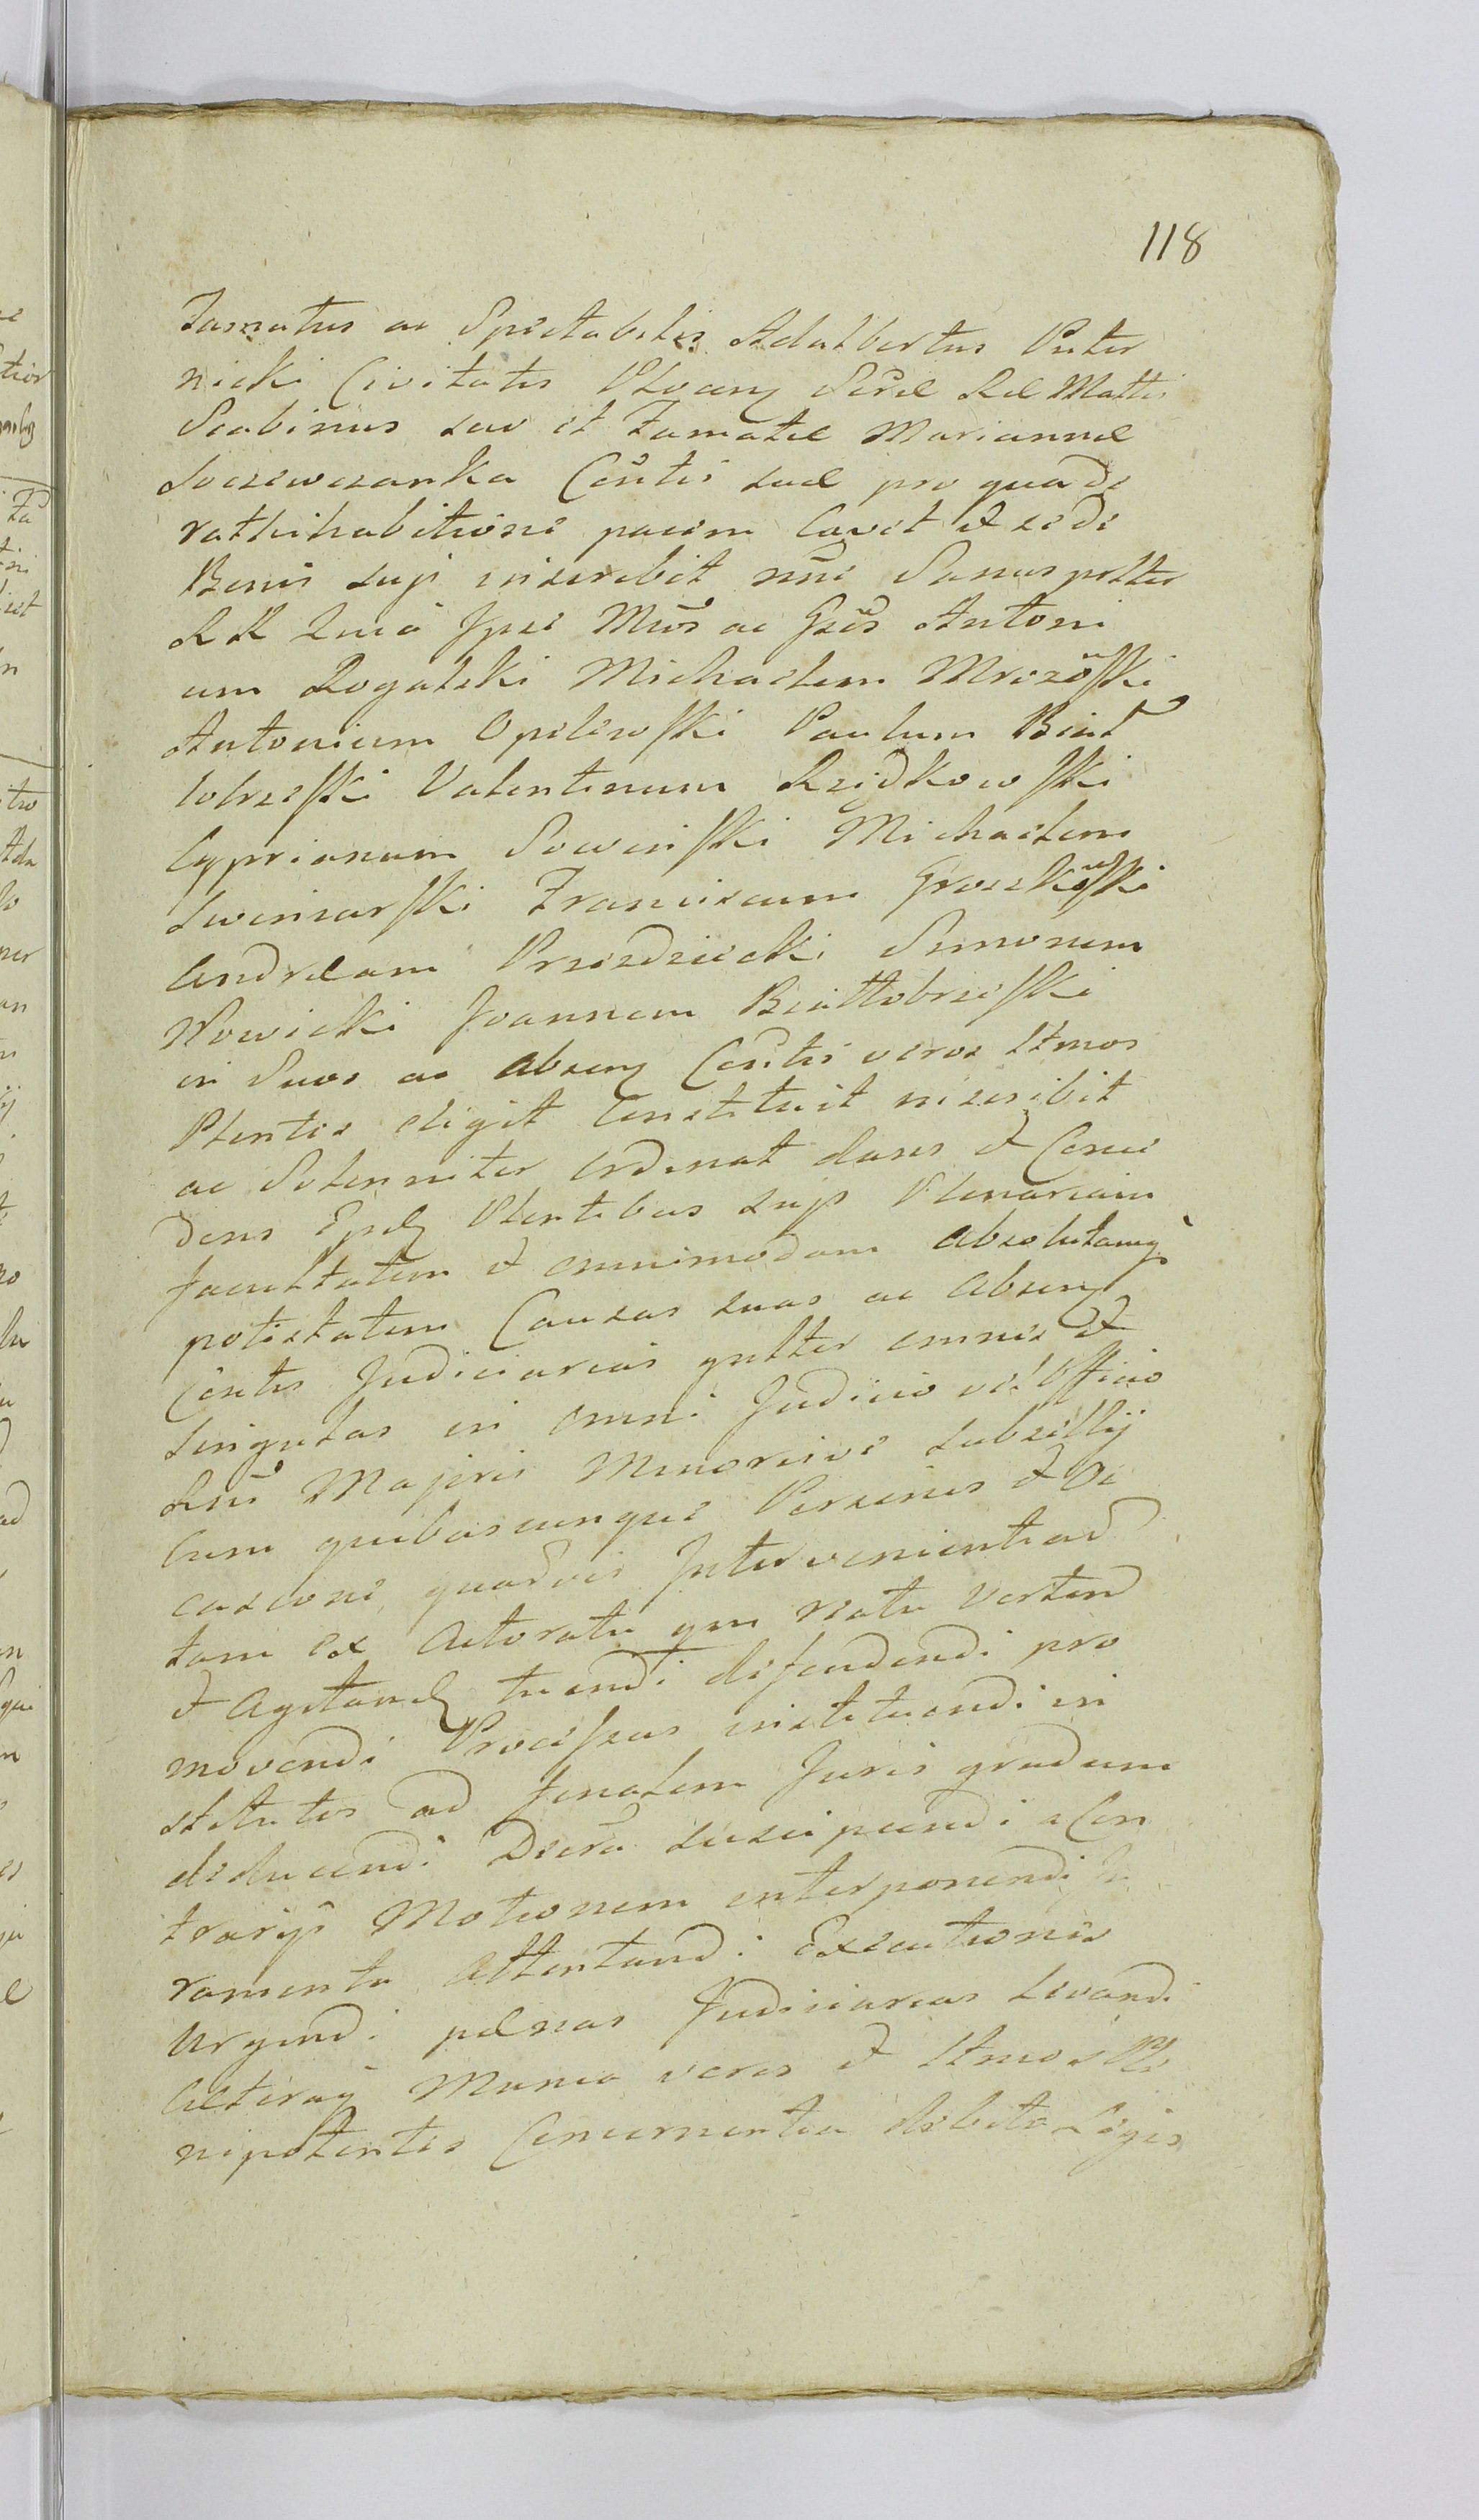 118
Famatus ac Spectabilis Adalbertus Puter
nicki Civitatis Plocen Sacræ Ræ Mattis
Scabinus suo et Famatæ Mariannæ
Soczewczanka Consortis suæ pro qua de
rathihabitione pacem cavet et se de
Bonis suis inscribit nõie Sanus pstter
R R Quia Ipse Mños ac Gños Antoni
um Rogalski Michaelem Mrozoski
Antonium Opilowski Paulum Biał
lobrzeski Valentinum Rzijdkowski
Cyprianum Sowinski Michaelem
Swiniarski Franciscum Groszkoski
Andræam Przezdziecki Simonem
Nowicki Joannem Białłobrzeski
in Suos ac absen Consortis veros ltmos
Plentes eligit Constituit inscribit
ac Solenniter ordinat dans et Conce
dens Ipsis Plentibus suis Plenariam
facultatem et omnimodam absolutamq
potestatem Causas suas ac absen
Consortis Judiciarias gnltter omnes et
singulas in omni Judicio vel Officio
Rni Majoris Minorisve subsellij
Cum quibuscunque Personis et Oc
casione quadvis Intervenientiad
tam ex actoratu qm reatu vertend
et agitand tuendi defendendi pro
movendi Processus instituendi in
stitutos ad finalem Juris gradum
deducendi Decreta suscipiendi a Con
trarijs Motionem interponendi Ju
ramenta attentandi Executiones
urgendi pænas Judiciarias levandi
Cæteraq Munia veros et ltmos Ple
nipotentes Concernentia debite Legis